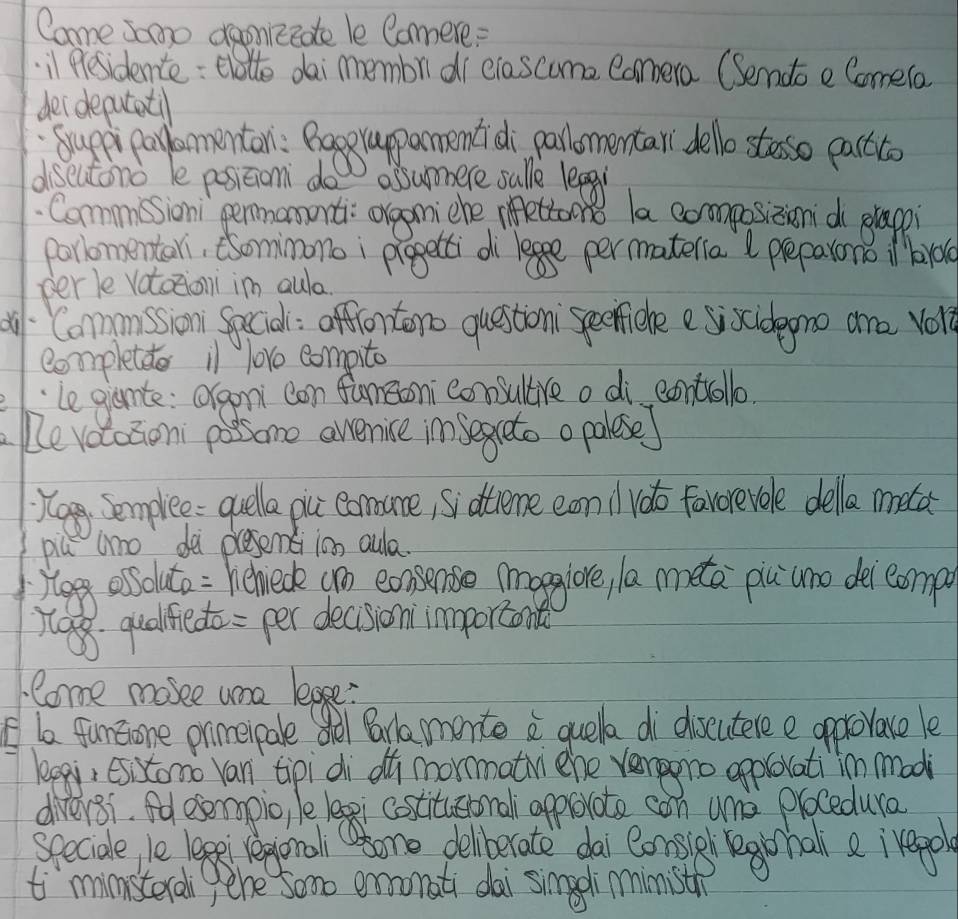 Come sono organizzate le Camere:
· il Presidente: eletto dai membri di ciascuna camera (Senato e Camera
dei deputati)
· Gruppi parlamentari: Raggruppamenti di parlamentari dello stesso partito
discutono le posizioni da assumere sulle leggi
· Commissioni permanenti: organi che riflettono la composizioni di gruppi
parlamentari. Esaminano i progetti di legge per materia e preparono il lavoro
per le votazioni in aula.
- Commissioni Speciali: affrontano questioni specifiche e si sciolgono una volta
completato il loro compito
· le giunte: organi con funzioni consultive o di controllo.
[Le votazioni possono avvenire in segreto o palese]
· Magg. Semplice = quella più comune, si ottiene con il voto favorevole della metà
più uno dei presenti in aula.
· Magg assoluta = richiede un consenso maggiore, la metà più uno dei compo
Magg. qualificata = per decisioni importanti
· Come nasce una legge:
La funzione principale del Parlamento è quella di discutere e approvare le
leggi. Esistono vari tipi di atti normativi che vengono approvati in modi
diversi. Ad esempio, le leggi costituzionali approvate con una procedura
speciale, le leggi regionali sono deliberate dai Consigli regionali e i regola
ti ministerali, che sono emanati dai singoli ministri